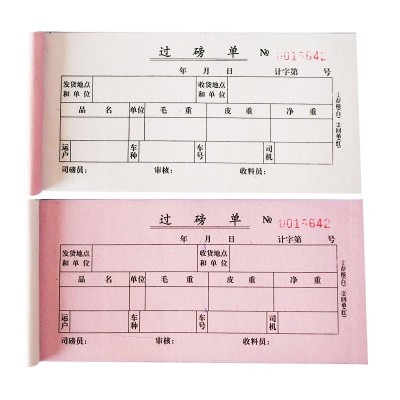 过磅单 № 0015642
年 月 日 计字第 号
发货地点和单位 收货地点和单位
品名 单位 毛重 皮重 净重
运户 车种 车号 司机
司磅员： 审核： 收料员：
①存根(白) ②回单(红)
过磅单 № 0015642
年 月 日 计字第 号
发货地点和单位 收货地点和单位
品名 单位 毛重 皮重 净重
运户 车种 车号 司机
司磅员： 审核： 收料员：
①存根(白) ②回单(红)